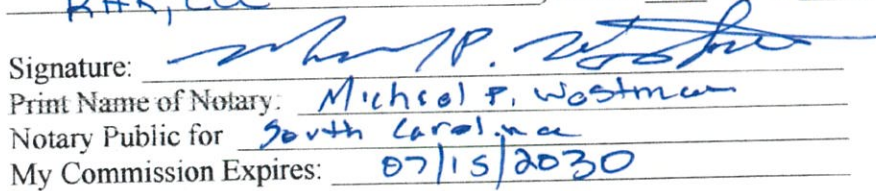 Signature:
Print Name of Notary: Michael P. Westman
Notary Public for South Carolina
My Commission Expires: 07/15/2030